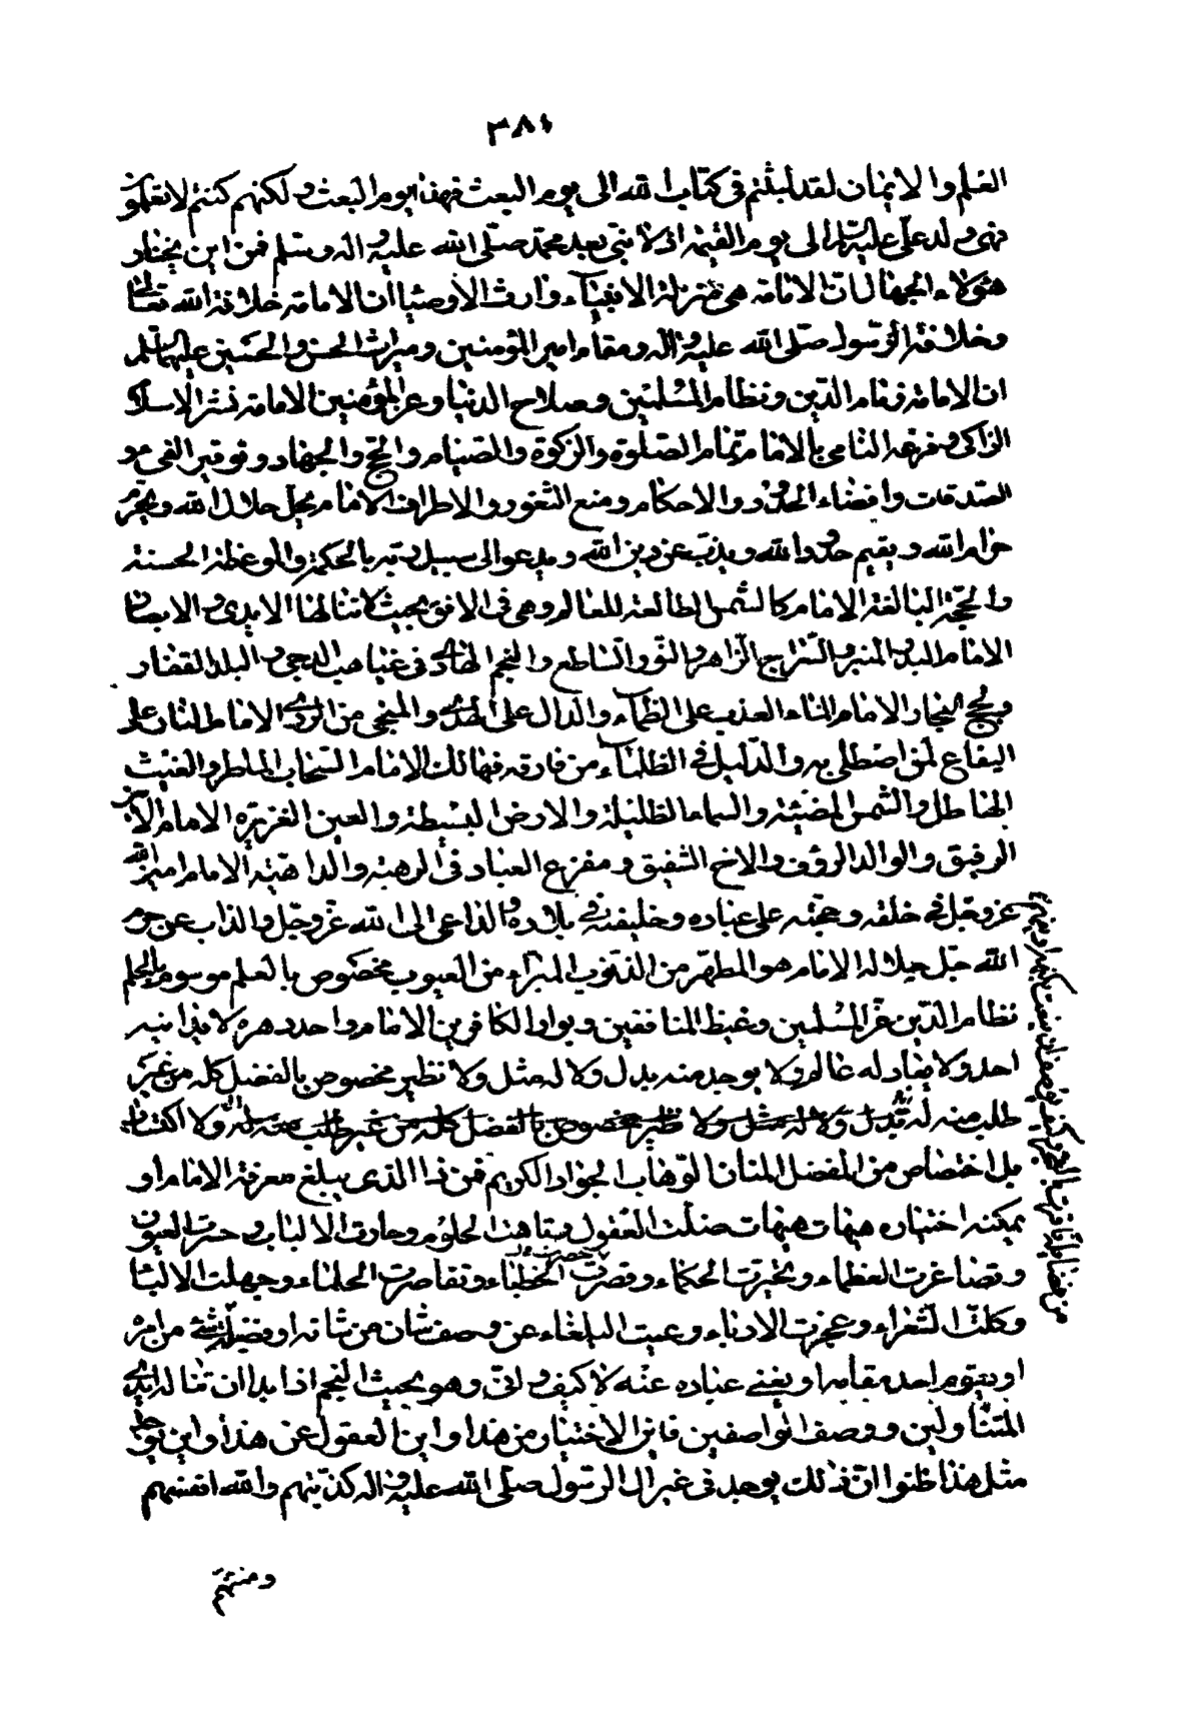 ٣٨٠
العلم والايمان لقد لبثتم فى كتاب الله الى يوم البعث فهذا يوم البعث ولكنكم كنتم لا تعلمون
فهى فى ولد على عليه السلم الى يوم القيمة اذ لا نبى بعد محمد صلى الله عليه واله وسلم فمن اين يختار
هؤلاء الجهال ان الامامة هى منزلة الانبياء وارث الاوصياء ان الامامة خلافة الله تعالى
وخلافة الرسول صلى الله عليه واله ومقام امير المؤمنين وميراث الحسن والحسين عليهما السلم
ان الامامة زمام الدين ونظام المسلمين وصلاح الدنيا وعز المؤمنين الامامة اس الاسلام
الزاكى وفرعه النامى بالامام تمام الصلوة والزكوة والصيام والحج والجهاد وتوفير الفئ و
الصدقات وامضاء الحدود والاحكام ومنع الثغور والاطراف الامام يحل حلال الله ويحرم
حرام الله ويقيم حدود الله ويذب عن دين الله ويدعو الى سبيل ربه بالحكمة والموعظة الحسنة
والحجة البالغة الامام كالشمس الطالعة للعالم وهى فى الافق بحيث لا تنالها الايدى والابصار
الامام البدر المنير والسراج الزاهر والنور الساطع والنجم الهادى فى غياهب الدجى والبلد القفار
ولجج البحار الامام الماء العذب على الظماء والدال على الهدى والمنجى من الردى الامام النار على
اليفاع لمن اصطلى به والدليل فى الظلماء من فارقه فهالك الامام السحاب الماطر والغيث
الهاطل والشمس المضيئة والسماء الظليلة والارض البسيطة والعين الغزيرة الامام الامين
الرفيق والوالد الرؤف والاخ الشفيق ومفزع العباد فى الرهبة والداهية الامام امين الله
عز وجل فى خلقه وحجته على عباده وخليفته فى بلاده والداعى الى الله عز وجل والذاب عن حرم
الله جل جلاله الامام هو المطهر من الذنوب المبراء من العيوب مخصوص بالعلم موسوم بالحلم
نظام الدين عز المسلمين وغيظ المنافقين وبوار الكافرين الامام واحد دهره لا يدانيه
احد ولا يعادله عالم ولا يوجد منه بدل ولا له مثل ولا نظير مخصوص بالفضل كله من غير
طلب منه له بدل ولا له مثل ولا نظير مخصوص بالفضل كله من غير طلب منه له ولا اكتساب
بل اختصاص من المفضل المنان الوهاب الجواد الكريم فمن ذا الذى يبلغ معرفة الامام او
يمكنه اختياره هيهات هيهات ضلت العقول وتاهت الحلوم وحارت الالباب وحسرت العيون
وتصاغرت العظماء وتحيرت الحكماء وقصرت الخطباء وتقاصرت الحلماء وجهلت الالباء
وكلت الشعراء وعجزت الادباء وعييت البلغاء عن وصف شان من شانه او فضيلة من امره
او يقوم احد مقامه او يغنى عناه عنه لا كيف وانى وهو بحيث النجم اذا بدا ان تناله ايدى
المتناولين ووصف الواصفين فاين الاختيار من هذا واين العقول عن هذا واين يوجد
مثل هذا ظنوا ان ذلك يوجد فى غير ال الرسول صلى الله عليه واله كذبتهم والله انفسهم
ومنتهم